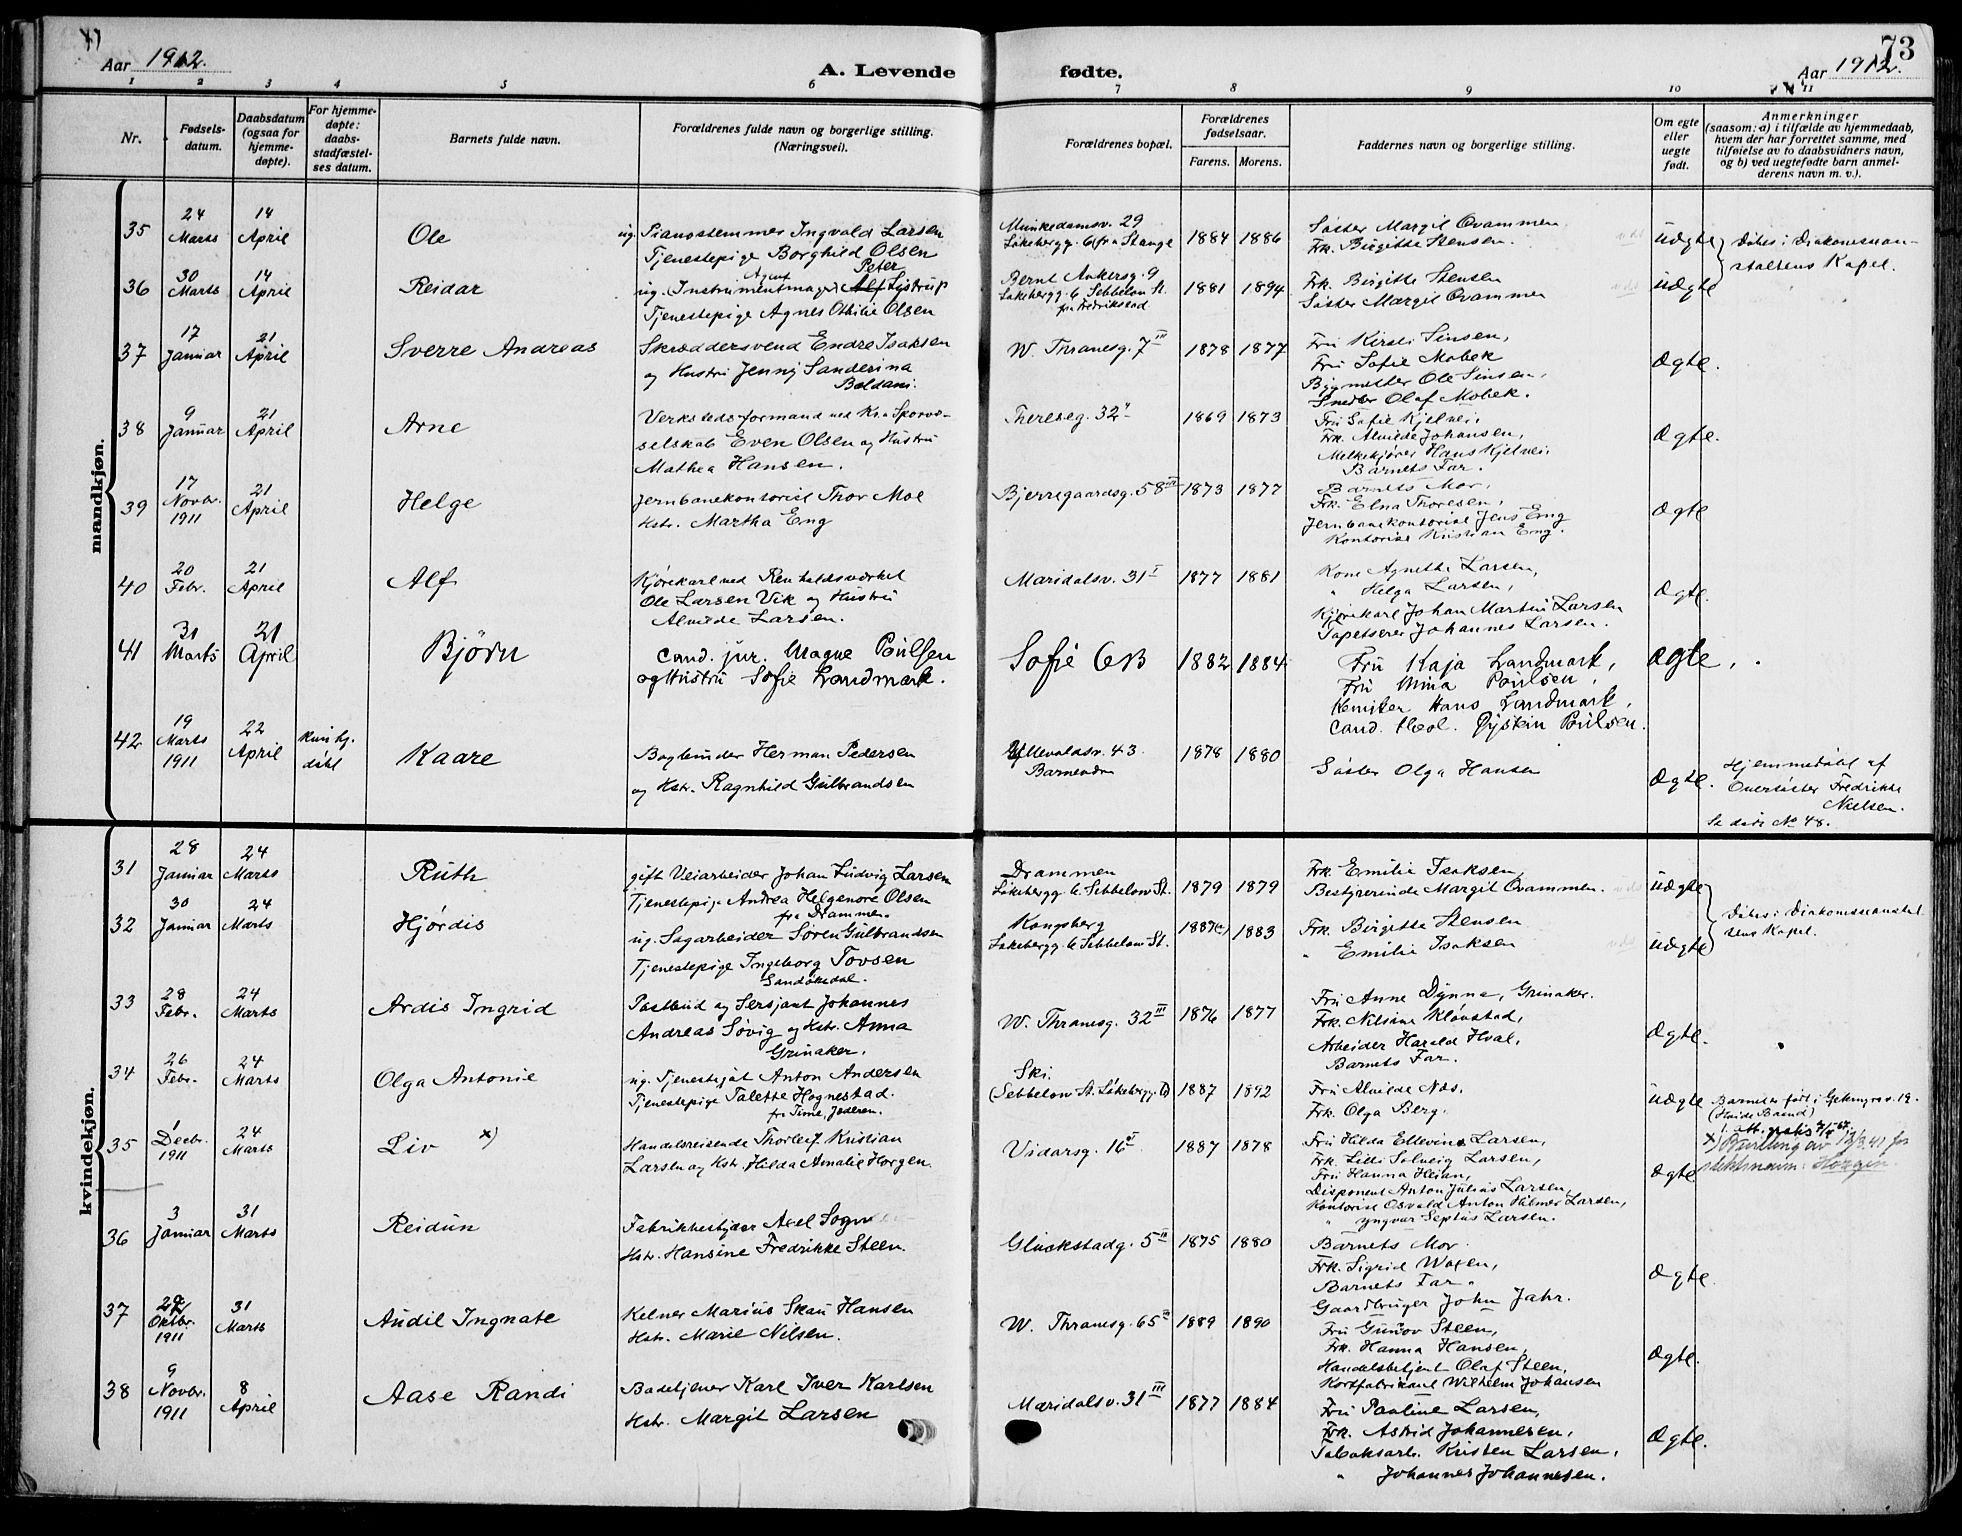 Aar 1912.
A. Levende fødte.
73
Aar 1912.
1 2 3 4 5 6 7 8 9 10 11
Nr.
Fødsels-
datum.
Daabsdatum
(ogsaa for
hjemme-
døpte).
For hjemme-
døpte:
daabs-
stadfæstel-
ses datum.
Barnets fulde navn.
Forældrenes fulde navn og borgerlige stilling.
(Næringsvei).
Forældrenes bopæl.
Forældrenes
fødselsaar.
Farens. Morens.
Faddernes navn og borgerlige stilling.
Om egte
eller
uegte
født.
Anmerkninger
(saasom: a) i tilfælde av hjemmedaab,
hvem der har forrettet samme, med
tilføielse av to daabsvidners navn,
og b) ved uegtefødte barn anmel-
derens navn m. v.).
mandkjøn.
35
24
Marts
14
April
Ole
ug. Pianostemmer Ingvald Larsen
Tjenestepige Borghild Olsen
Munkedamsv. 29
Løkebergg. 6 fra Stange
1884 1886
Søster Margit Ovammen
Frk. Birgitte Stensen.
uægte
Døbes i Diakonissean-
staltens Kapel.
36
30
Marts
14
April
Reidar
Agent Peter
ug. (Instrumentmager Alf Systrup
Tjenestepige Agnes Othilie Olsen
Bernt Ankersg. 9
Løkebergg. 6 Sebbelow St.
fra Fredrikstad
1881 1894
Frk. Birgitte Stensen
Søster Margit Ovammen
uægte
37
17
Januar
21
April
Sverre Andreas
Skræddersvend Endre Isaksen
og Hustru Jenny Sanderina
Boldani.
W. Thranesg. 7 III
1878 1877
Fru Kirsti Sinsen,
Fru Sofie Mobek
Bygmester Ole Sinsen,
Snedker Olaf Mobek.
Ægte.
38
9
Januar
21
April
Arne
Verkstedsformand ved Kr.a Sporvs-
selskab Even Olsen og Hustru
Mathea Hansen.
Thereseg. 32 II
1869 1873
Fru Sofie Kjelvei,
Frk. Alvilde Johansen,
Melkekjører Hans Kjelvei.
Barnets Far.
Ægte.
39
17
Novbr.
1911
21
April
Helge
Jernbanekontorist Thor Moe
Hstr. Martha Eng
Bjerregaardsg. 58 III
1873 1877
Barnets Mor,
Frk. Elna Thoresen,
Jernbanekontorist Jens Eng
Kontorist Kristian Eng.
Ægte
40
20
Febr.
21
April
Alf
Kjørekarl ved Renholdsverket
Ole Larsen Vik og Hustru
Alvilde Larsen.
Maridalsv. 31 I
1877 1881
Kone Agnethe Larsen,
" Helga Larsen,
Kjørekarl Johan Martin Larsen
Tapetserer Johannes Larsen.
Ægte.
41
31
Marts
21
April
Bjørn
Cand. jur. Magne Poulsen
og Hustru Sofie Landmark.
Sofie 6B
1882 1884
Fru Kaja Landmark,
Fru Mina Poulsen,
Kemiker Hans Landmark,
Cand. theol. Øystein Poulsen.
Ægte.
42
19
Marts
1911
22
April
Kun hj.
døbt
Kaare
Bogbinder Herman Pedersen
og Hstr. Ragnhild Gulbrandsen
Ullevaldsv. 43.
1878 1880
Søster Olga Hansen
Ægte.
Hjemmedøbt af
Oversøster Fredrikke
Nielsen.
Se dåde No 48.
kvindekjøn.
31
28
Januar
24
Marts
Ruth
gift Veiarbeider Johan Ludvig Larsen
Tjenestepige Andrea Helgenore Olsen
fra Drammen.
Drammen
Løkebergg. 6. Sebbelow St.
1879 1879
Frk. Emilie Isaksen,
Bestyrerinde Margit Ovammen.
uægte
Døbes i Diakonisseanstal
tens Kapel.
32
30
Januar
24
Marts
Hjørdis
ug. Sagarbeider Søren Gulbrandsen
Tjenestepige Ingeborg Tovsen
Sandøkedal.
Kongsberg
Løkebergg. 6 Sebbelow St.
1883
Frk. Birgitte Stensen
" Emilie Isaksen
uægte
33
28
Febr.
24
Marts
Ardis Ingrid
Postbud og Sersjant Johannes
Andreas Søvig og Hstr. Anna
Grinaker.
W. Thranesg. 32 III
1876 1877
Fru Anne Dynna, Grinaker.
Frk. Nilsine Kløvstad,
Arbeider Harald Hval,
Barnets Far.
Ægte.
34
26
Febr.
24
Marts
Olga Antonie
ug. Tjenestegut Anton Andersen
Tjenestepige Talette Hognestad.
fr Time, Jæderen.
Ski.
(Sebbelow St. Løkebergg. 6)
1887 1892
Fru Alvilde Næs.
Frk. Olga Berg.
uægte
35
1
Decbr.
1911
24
Marts
Liv x)
Handelsreisende Thorleif Kristian
Larsen og Hstr. Hilda Amalie Horgen.
Vidarsg. 16
1887 1878
Fru Hilda Ellevine Larsen,
Frk. Lilli Solveig Larsen,
Fru Hanna Heian,
Disponent Anton Julius Larsen,
Kontorist Osvald Anton Hilmar Larsen,
" Yngvar Septus Larsen.
Ægte
x) Bevilling av 12/3.41 for
slektsnavn: Horgen.
36
3
Januar
31
Marts
Reidun
Fabrikbestyrer Axel Sogn
Hstr. Hansine Fredrikke Steen.
Glückstadg. 5 II
1875 1880
Barnets Mor.
Frk. Sigrid Wogen,
Barnets Far.
Gaardbruger John Jahr.
Ægte.
37
Oktbr.
1911
31
Marts
Audil Ingnate
Kelner Marius Skau Hansen
Hstr. Marie Nilsen.
W. Thranesg. 65 III
1889 1890
Fru Gunov Steen,
Frk. Hanna Hansen,
Handelsbetjent Olaf Steen,
Kortfabrikant Wilhelm Johansen
Ægte.
38
9
Novbr.
1911
8
April
Aase Randi
Badetjener Karl Iver Karlsen
Hstr. Margit Larsen
Maridalsv. 31 III
1877 1884
Fru Pauline Larsen,
Frk. Astrid Johannesen,
Tobaksarb. Kristen Larsen,
" Johannes Johannesen.
Ægte.